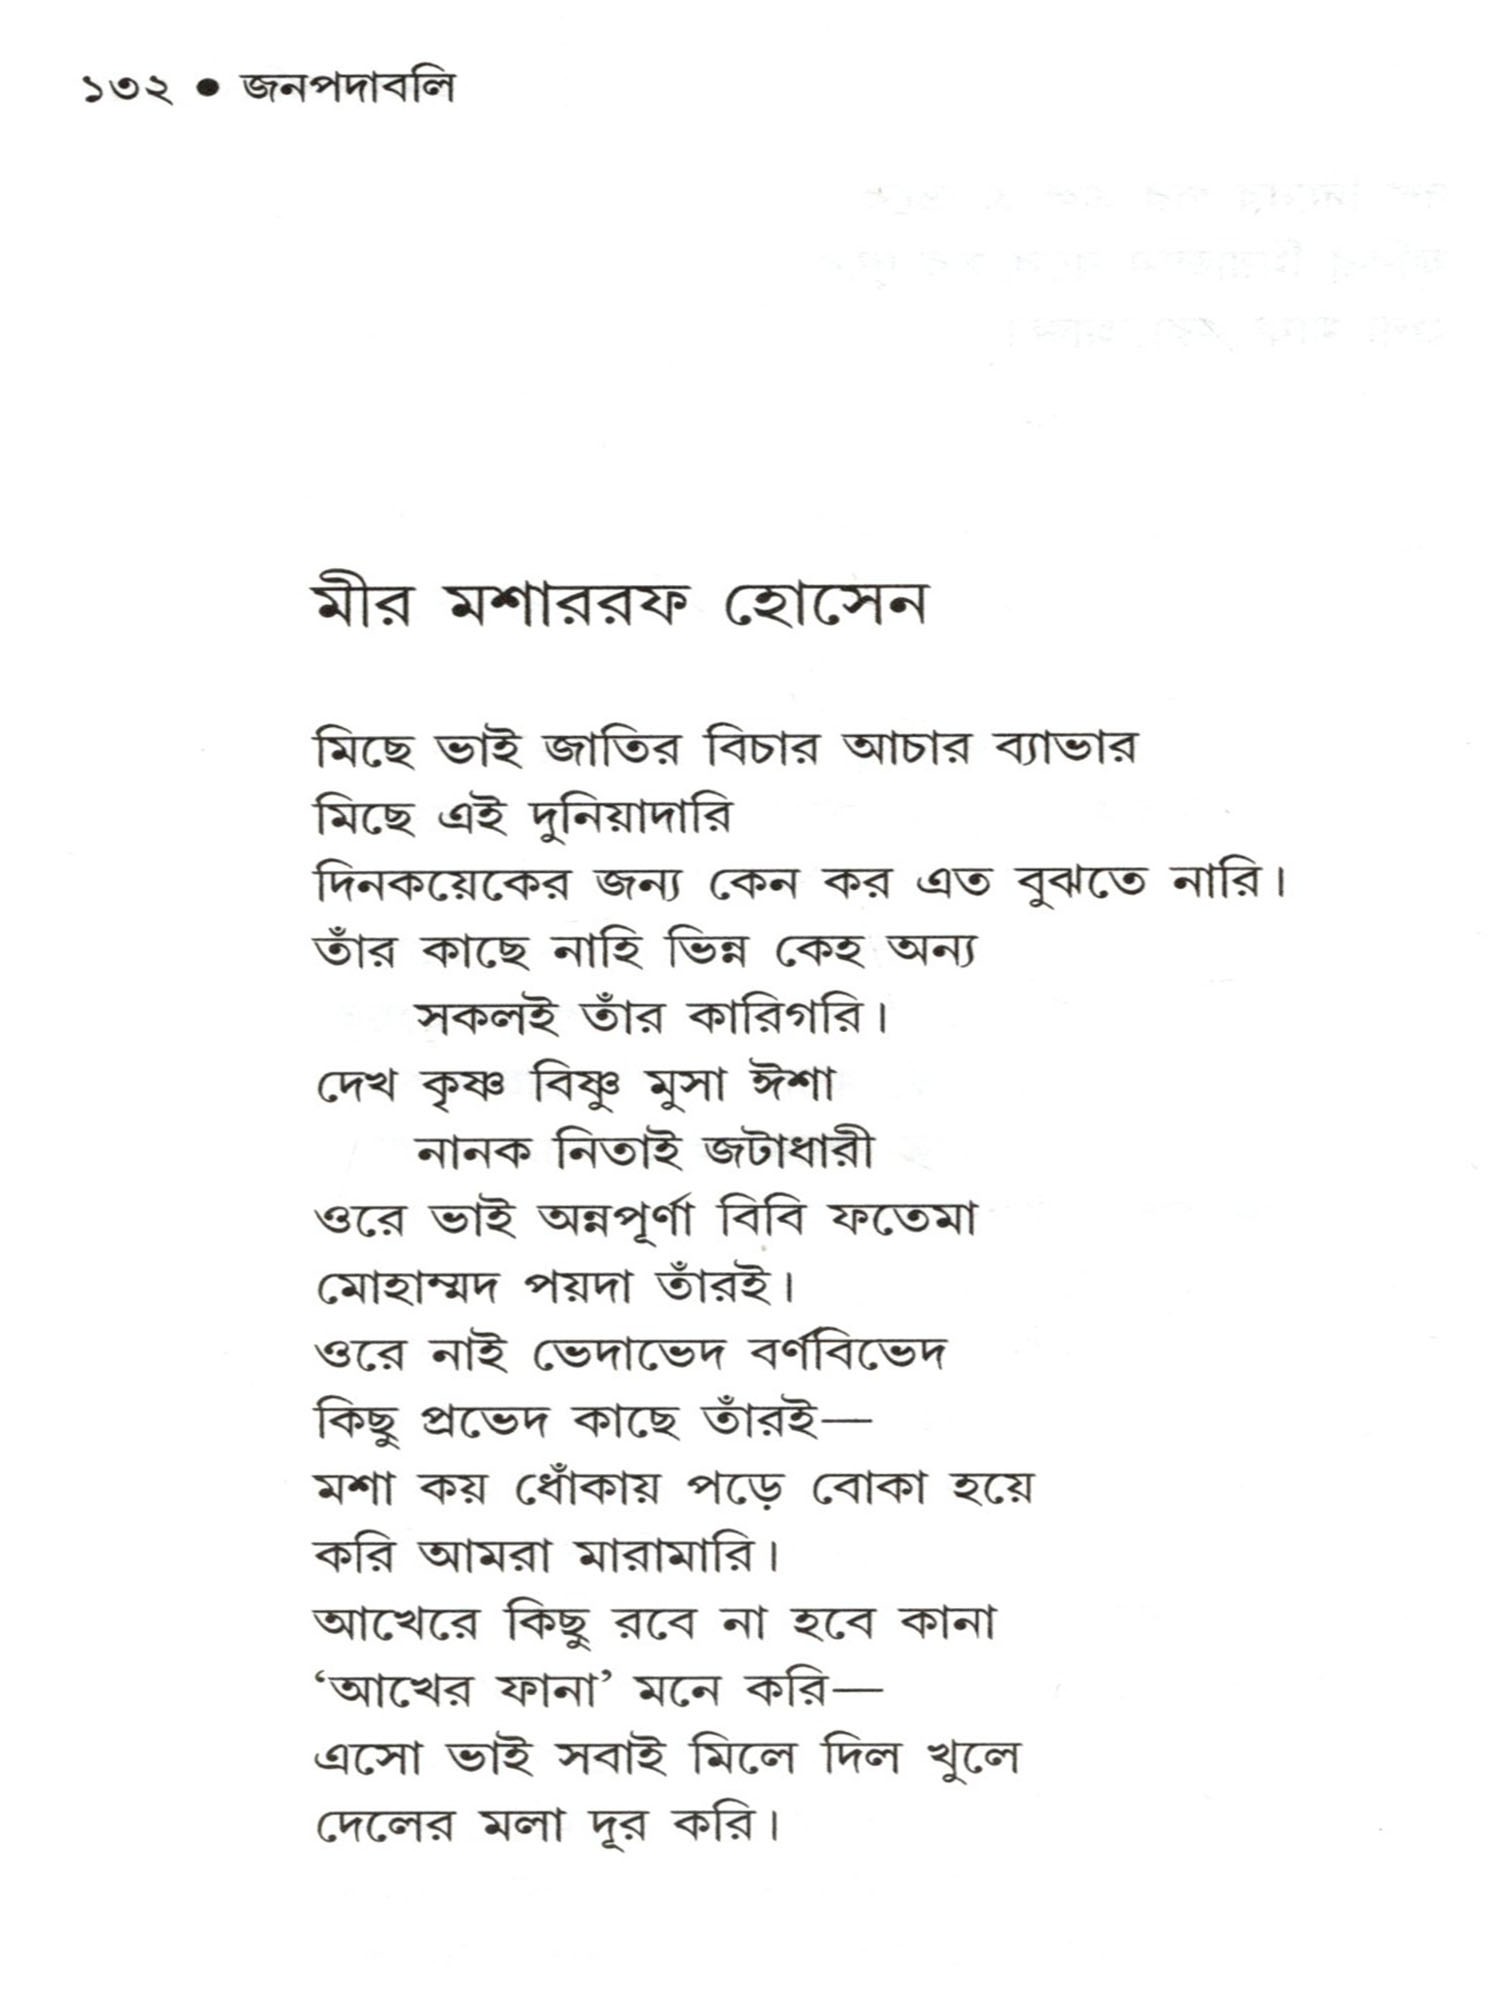 ১৩২ ● জনপদাবলি
মীর মশাররফ হোসেন
মিছে ভাই জাতির বিচার আচার ব্যাভার
মিছে এই দুনিয়াদারি
দিনকয়েকের জন্য কেন কর এত বুঝতে নারি।
তাঁর কাছে নাহি ভিন্ন কেহ অন্য
সকলই তাঁর কারিগরি।
দেখ কৃষ্ণ বিষ্ণু মুসা ঈশা
নানক নিতাই জটাধারী
ওরে ভাই অন্নপূর্ণা বিবি ফতেমা
মোহাম্মদ পয়দা তাঁরই।
ওরে নাই ভেদাভেদ বর্ণবিভেদ
কিছু প্রভেদ কাছে তাঁরই—
মশা কয় ধোঁকায় পড়ে বোকা হয়ে
করি আমরা মারামারি।
আখেরে কিছু রবে না হবে কানা
‘আখের ফানা’ মনে করি—
এসো ভাই সবাই মিলে দিল খুলে
দেলের মলা দূর করি।